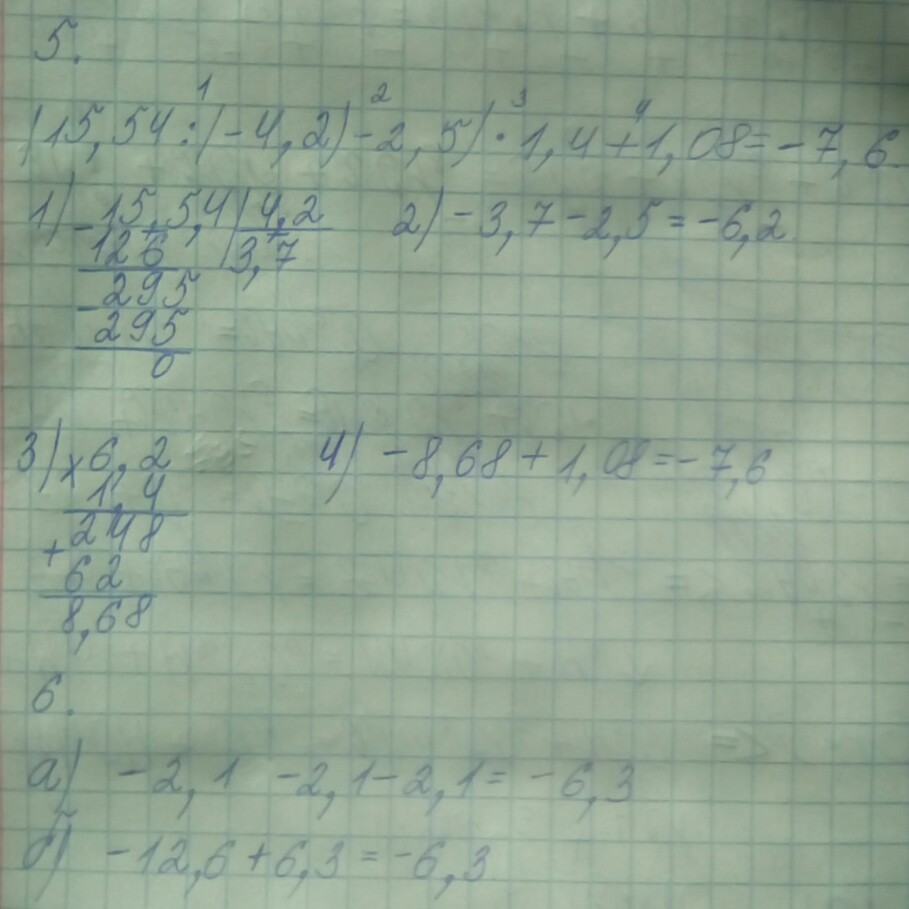 5.
1 2 3 4
(15,54:(-4,2)-2,5)·1,4+1,08=-7,6
1) -15,54|4,2 2) -3,7-2,5=-6,2
126 |3,7
-295
295
0
3) ×6,2 4) -8,68+1,08=-7,6
1,4
248
+
62
8,68
6.
а) -2,1 -2,1-2,1=-6,3
б) -12,6+6,3=-6,3